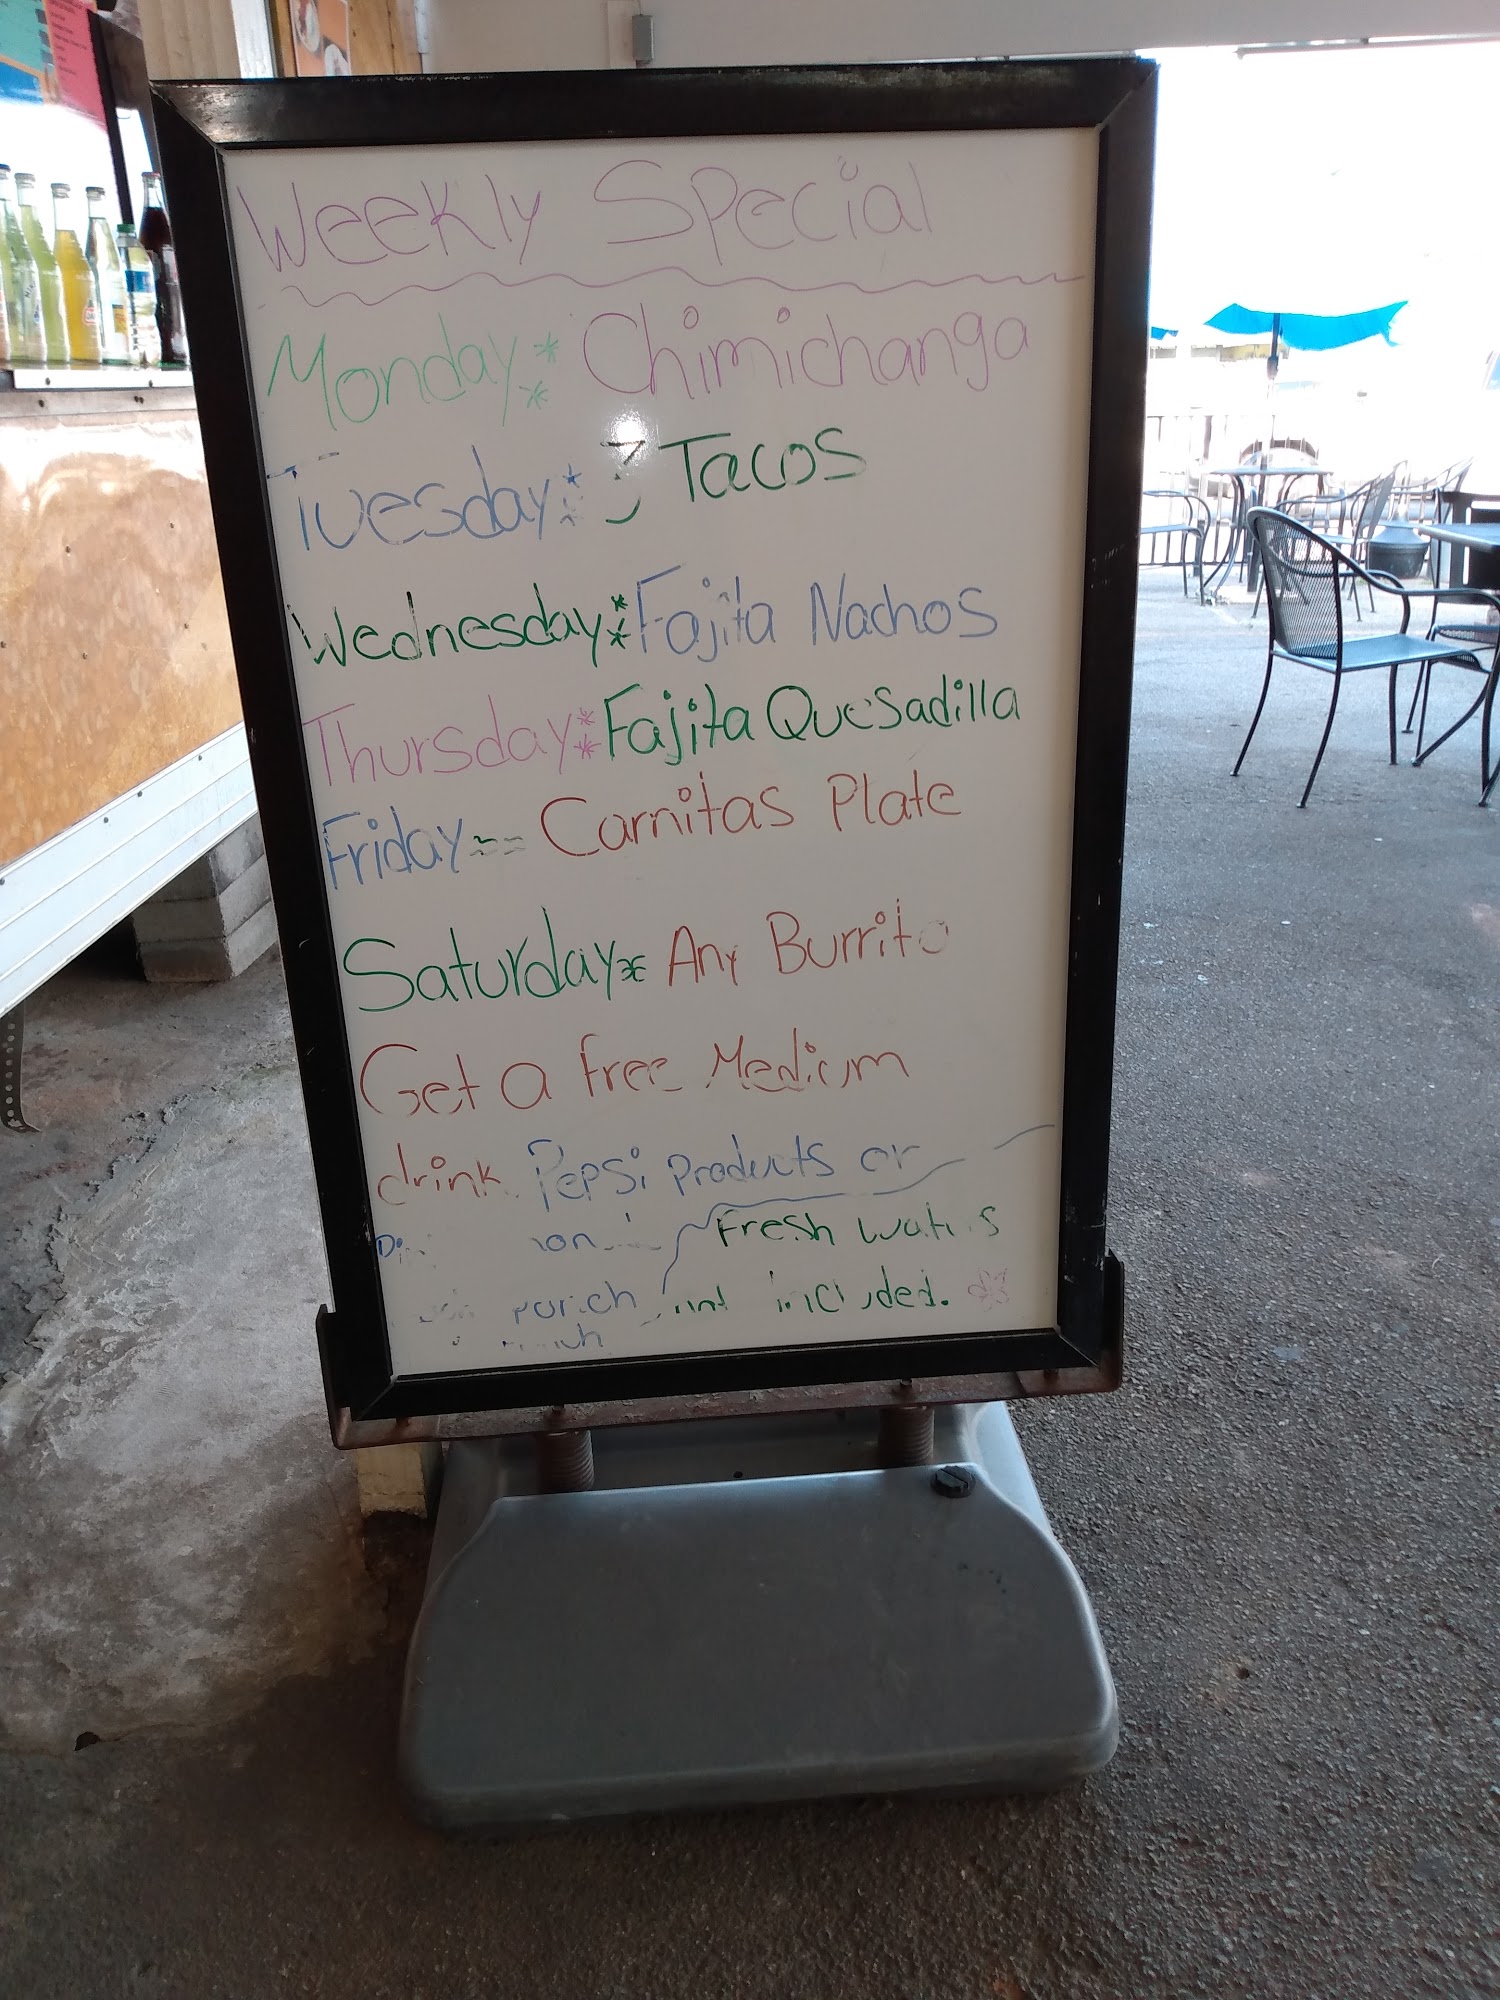 Weekly Special
Monday: Chimichanga
Tuesday: 3 Tacos
Wednesday: Fajita Nachos
Thursday: Fajita Quesadilla
Friday -- Carnitas Plate
Saturday* Any Burrito
Get a free Medium
drink. Pepsi products or
Fresh waters
not included.